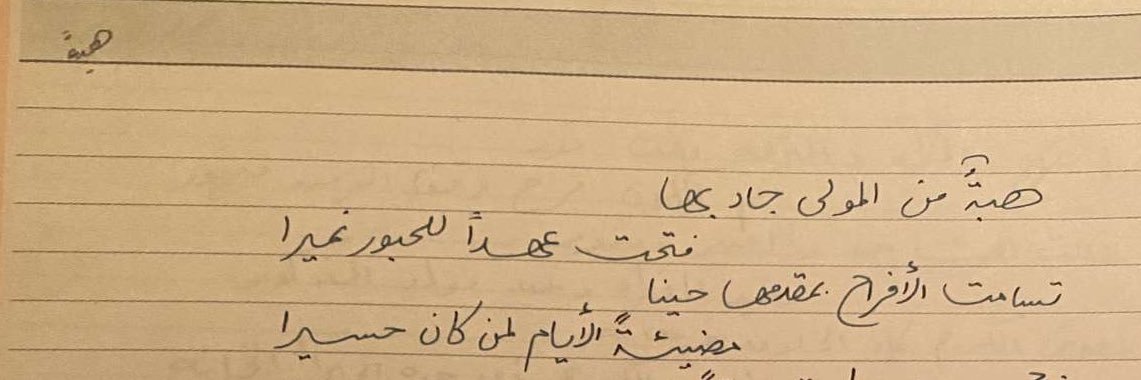 هبةً
هبةٌ من المولى جاد بها
فتحت عهداً للحبور نميرا
تسامت الأفراح بمقدمها حينا
مضيئةً الأيام لمن كان حسيرا